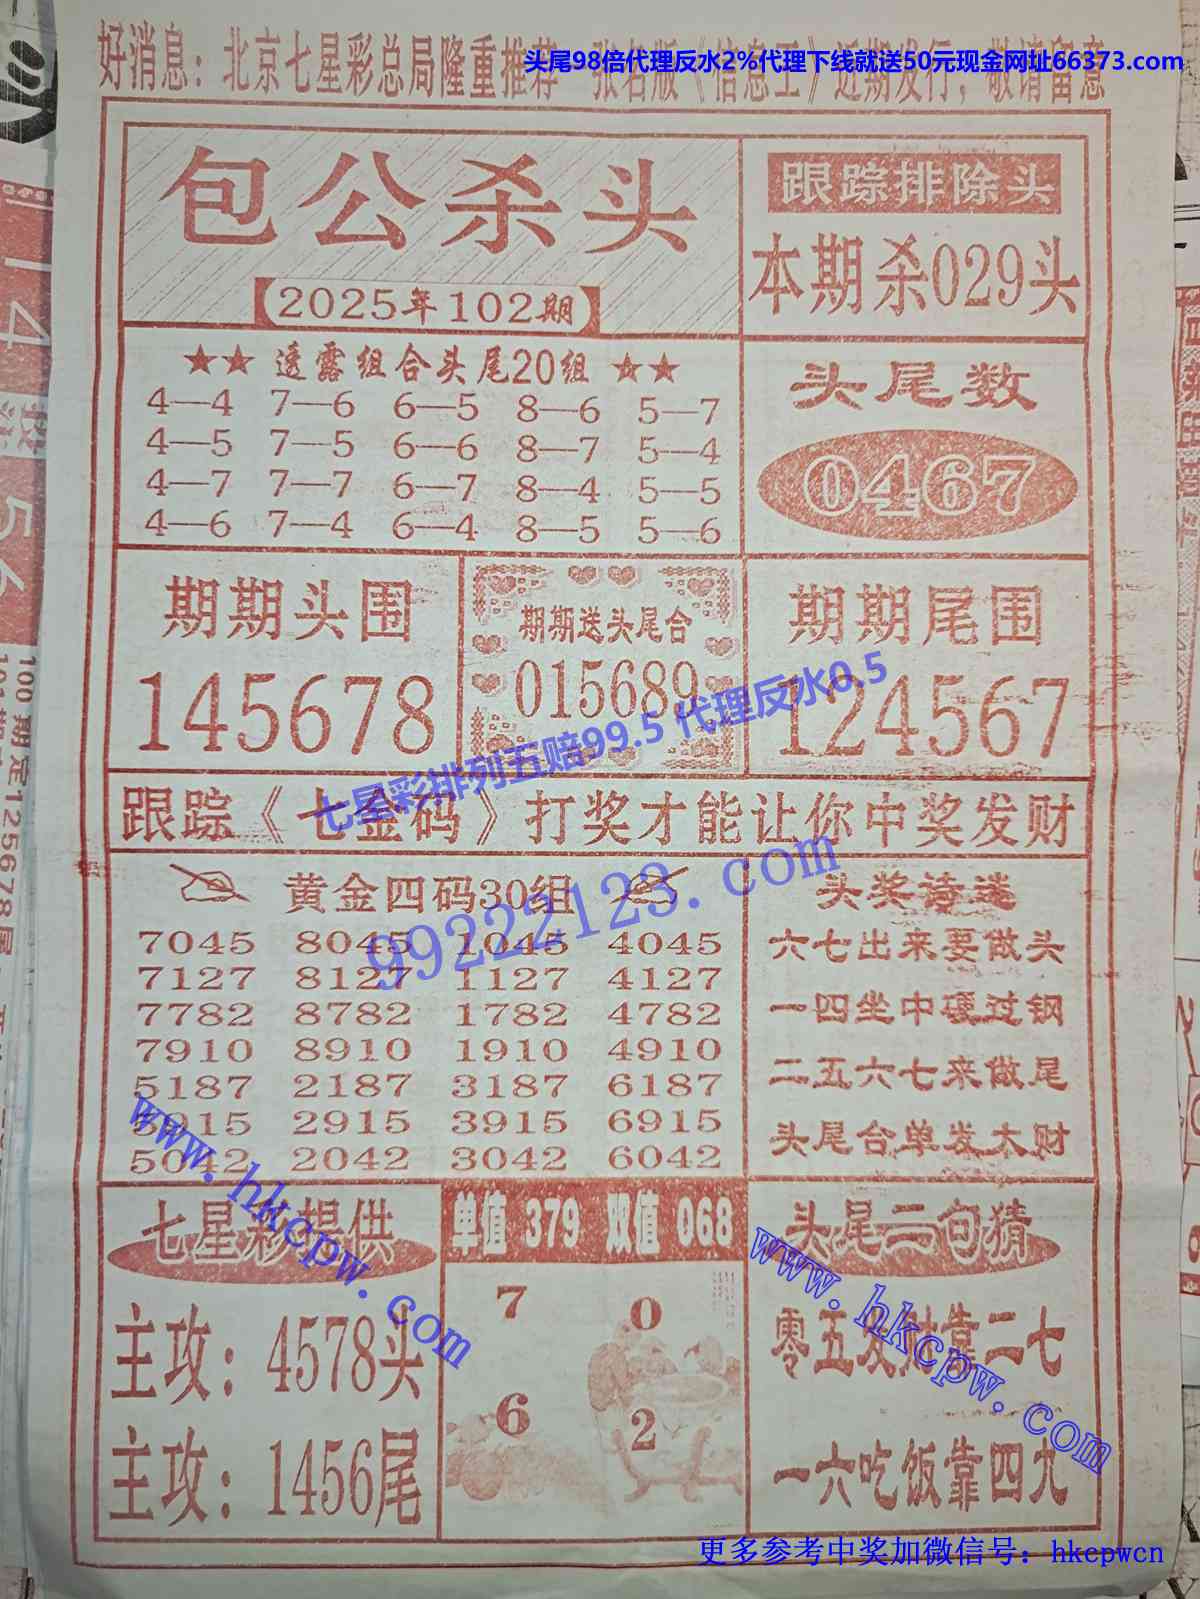 头尾98倍代理反水2%代理下线就送50元现金网址66373.com
好消息：北京七星彩总局隆重推荐 张名版《信息王》近期发行，敬请留意
包公杀头
【2025年102期】
跟踪排除头
本期杀029头
★★ 透露组合头尾20组 ★★
4—4 7—6 6—5 8—6 5—7
4—5 7—5 6—6 8—7 5—4
4—7 7—7 6—7 8—4 5—5
4—6 7—4 6—4 8—5 5—6
头尾数
0467
期期头围
145678
期期送头尾合
015689
期期尾围
124567
七星彩排列五赔99.5 代理反水0.5
跟踪《七金码》打奖才能让你中奖发财
99222123.com
黄金四码30组
7045 8045 1045 4045
7127 8127 1127 4127
7782 8782 1782 4782
7910 8910 1910 4910
5187 2187 3187 6187
5915 2915 3915 6915
5042 2042 3042 6042
头奖诗迷
六七出来要做头
一四坐中硬过钢
二五六七来做尾
头尾合单发大财
www.hkcpw.com
七星彩提供
主攻：4578头
主攻：1456尾
单值 379 双值 068
7 0
6 2
头尾二句猜
零五发财靠二七
一六吃饭靠四九
www.hkcpw.com
更多参考中奖加微信号：hkcpwcn
100期定125678尾